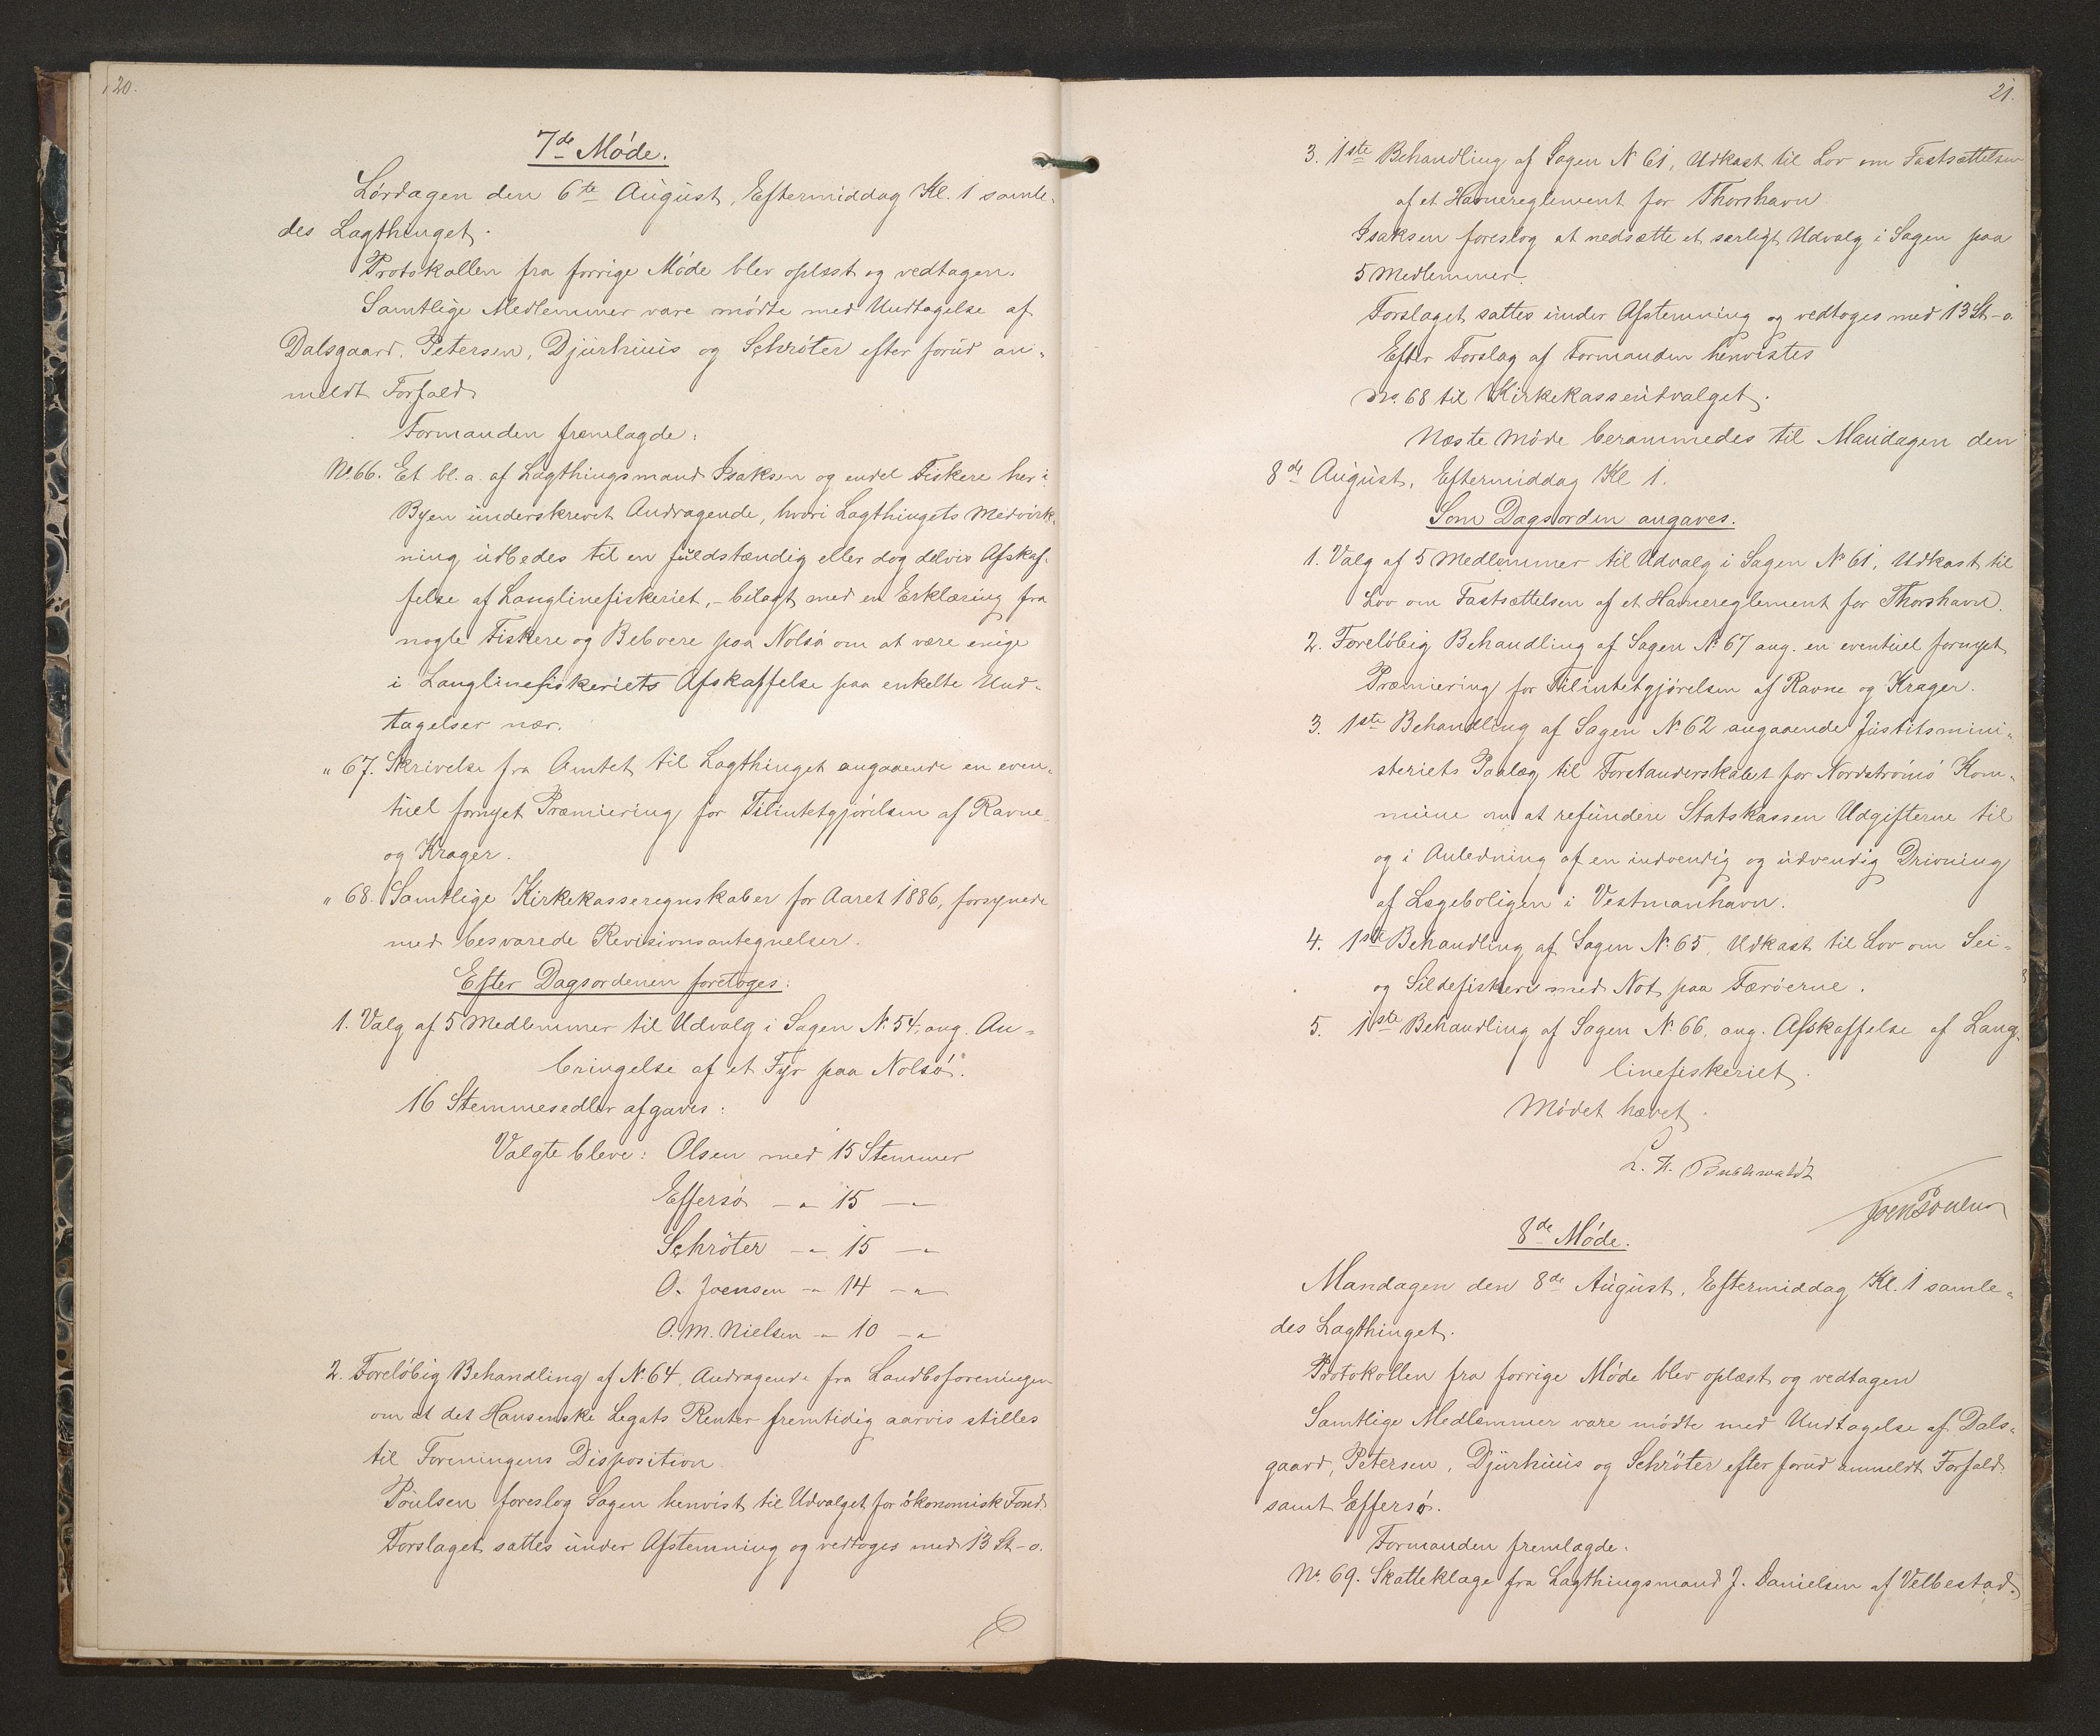 20.
7de Möde.
Lördagen den 6te August, Eftermiddag Kl. 1 samle-
des Lagthinget.
Protokollen fra forrige Möde blev oplæst og vedtagen.
Samtlige Medlemmer vare mödte med Undtagelse af
Dalsgaard, Petersen, Djurhuus og Schröter efter forud an-
meldt Forfald.
Formanden fremlagde:
No. 66. Et bl. a. af Lagthingsmand Isaksen og endel Fiskere her i
Byen underskrevet Andragende, hvori Lagthingets Medvirk-
ning udbedes til en fuldstændig eller dog delvis Afskaf-
felse af Langlinefiskeriet, - bilagt med en Erklæring fra
nogle Fiskere og Beboere paa Nolsö om at være enige
i Langlinefiskeriets Afskaffelse paa enkelte Und-
tagelser nær.
" 67. Skrivelse fra Amtet til Lagthinget angaaende en even-
tuel fornyet Præmiering for Tilintetgjörelsen af Ravne
og Krager.
" 68. Samtlige Kirkekasseregnskaber for Aaret 1886, forsynede
med besvarede Revisionsantegnelser.
Efter Dagsordenen foretoges:
1. Valg af 5 Medlemmer til Udvalg i Sagen No. 54, ang. An-
bringelse af et Fyr paa Nolsö.
16 Stemmesedler afgaves:
Valgte bleve: Olsen med 15 Stemmer
Effersö - " - 15 - " -
Schröter - " - 15 - " -
O. Joensen - " - 14 - " -
O. M. Nielsen - " - 10 - " -
2. Foreløbig Behandling af No. 64, Andragende fra Landboforeningen
om at det Hansenske Legats Renter fremtidig aarvis stilles
til Foreningens Disposition.
Poulsen foreslog Sagen henvist til Udvalget for ökonomisk Fond.
Forslaget sattes under Afstemning og vedtoges med 13 St - o.
21.
3. 1ste Behandling af Sagen No 61, Udkast til Lov om Fastsættelsen
af et Havnereglement for Thorshavn
Isaksen foreslog at nedsætte et særligt Udvalg i Sagen paa
5 Medlemmer.
Forslaget sattes under Afstemning og vedtoges med 13 St - o.
Efter Forslag af Formanden henvistes
No. 68 til Kirkekasseudvalget.
Næste Möde berammedes til Mandagen den
8de August, Eftermiddag Kl 1.
Som Dagsorden angaves:
1. Valg af 5 Medlemmer til Udvalg i Sagen No 61, Udkast til
Lov om Fastsættelsen af et Havnereglement for Thorshavn.
2. Forelöbig Behandling af Sagen No 67 ang. en eventuel fornyet
Præmiering for Tilintetgjörelsen af Ravne og Krager.
3. 1ste Behandling af Sagen No. 62 angaaende Justitsmini-
steriets Paalæg til Forstanderskabet for Nordströmö Kom-
mune om at refundere Statskassen Udgifterne til
og i Anledning af en indvendig og udvendig Drivning
af Lægeboligen i Vestmanhavn.
4. 1ste Behandling af Sagen No. 65, Udkast til Lov om Sei-
og Sildefiskeri med Not paa Færöerne.
5. 1ste Behandling af Sagen No. 66. ang. Afskaffelse af Lang-
linefiskeriet.
Mödet hævet.
Buchwaldt
Joen Poulsen
8de Möde.
Mandagen den 8de August, Eftermiddag Kl. 1 samle-
des Lagthinget.
Protokollen fra forrige Möde blev oplæst og vedtagen
Samtlige Medlemmer vare mödte med Undtagelse af Dals-
gaard, Petersen, Djurhuus og Schröter efter forud anmeldt Forfald
samt Effersö.
Formanden fremlagde.
No. 69. Skatteklage fra Lagthingsmand J. Danielsen af Velbestad.